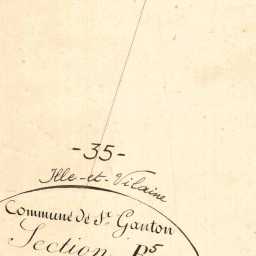 -35-
Ille-et-Vilaine
Commune de St. Ganton
Section D5